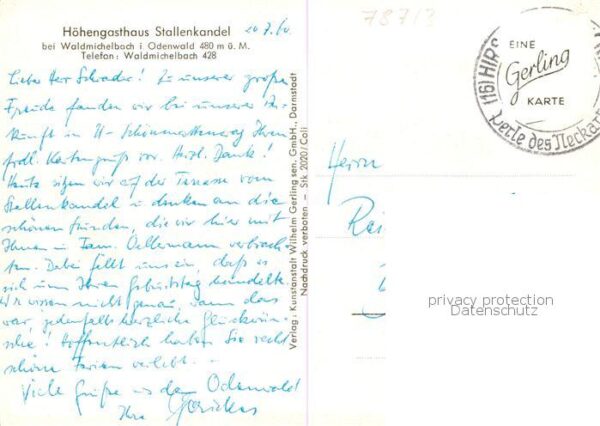 Höhengasthaus Stallenkandel
bei Waldmichelbach i Odenwald 480 m ü. M.
Telefon: Waldmichelbach 428
20.7.60.
Lieber Herr Schrader! Zu unserer großen
Freude fanden wir bei unserer An-
kunft in U-Schönmattenwag Ihren
frdl. Kartengruß vor. Herzl. Dank!
Heute sitzen wir auf der Terrasse vom
Stallenkandel u. denken an die
schönen Stunden, die wir hier mit
Ihnen u. Fam. Oellermann verbrach-
ten. Dabei fällt uns ein, daß es
sich um Ihren Geburtstag handelte
Wir wissen nicht genau, wann das
war, jedenfalls herzliche Glückwün-
sche! Hoffentlich haben Sie recht
schöne Ferien verlebt. -
Viele Grüße aus dem Odenwald
Ihre
Verlag: Kunstanstalt Wilhelm Gerling sen. GmbH., Darmstadt
Nachdruck verboten - Stk 2020/Coli
78713
EINE
Gerling
KARTE
(16) HIRS
Perle des Neckar
Herrn
Rei
privacy protection
Datenschutz